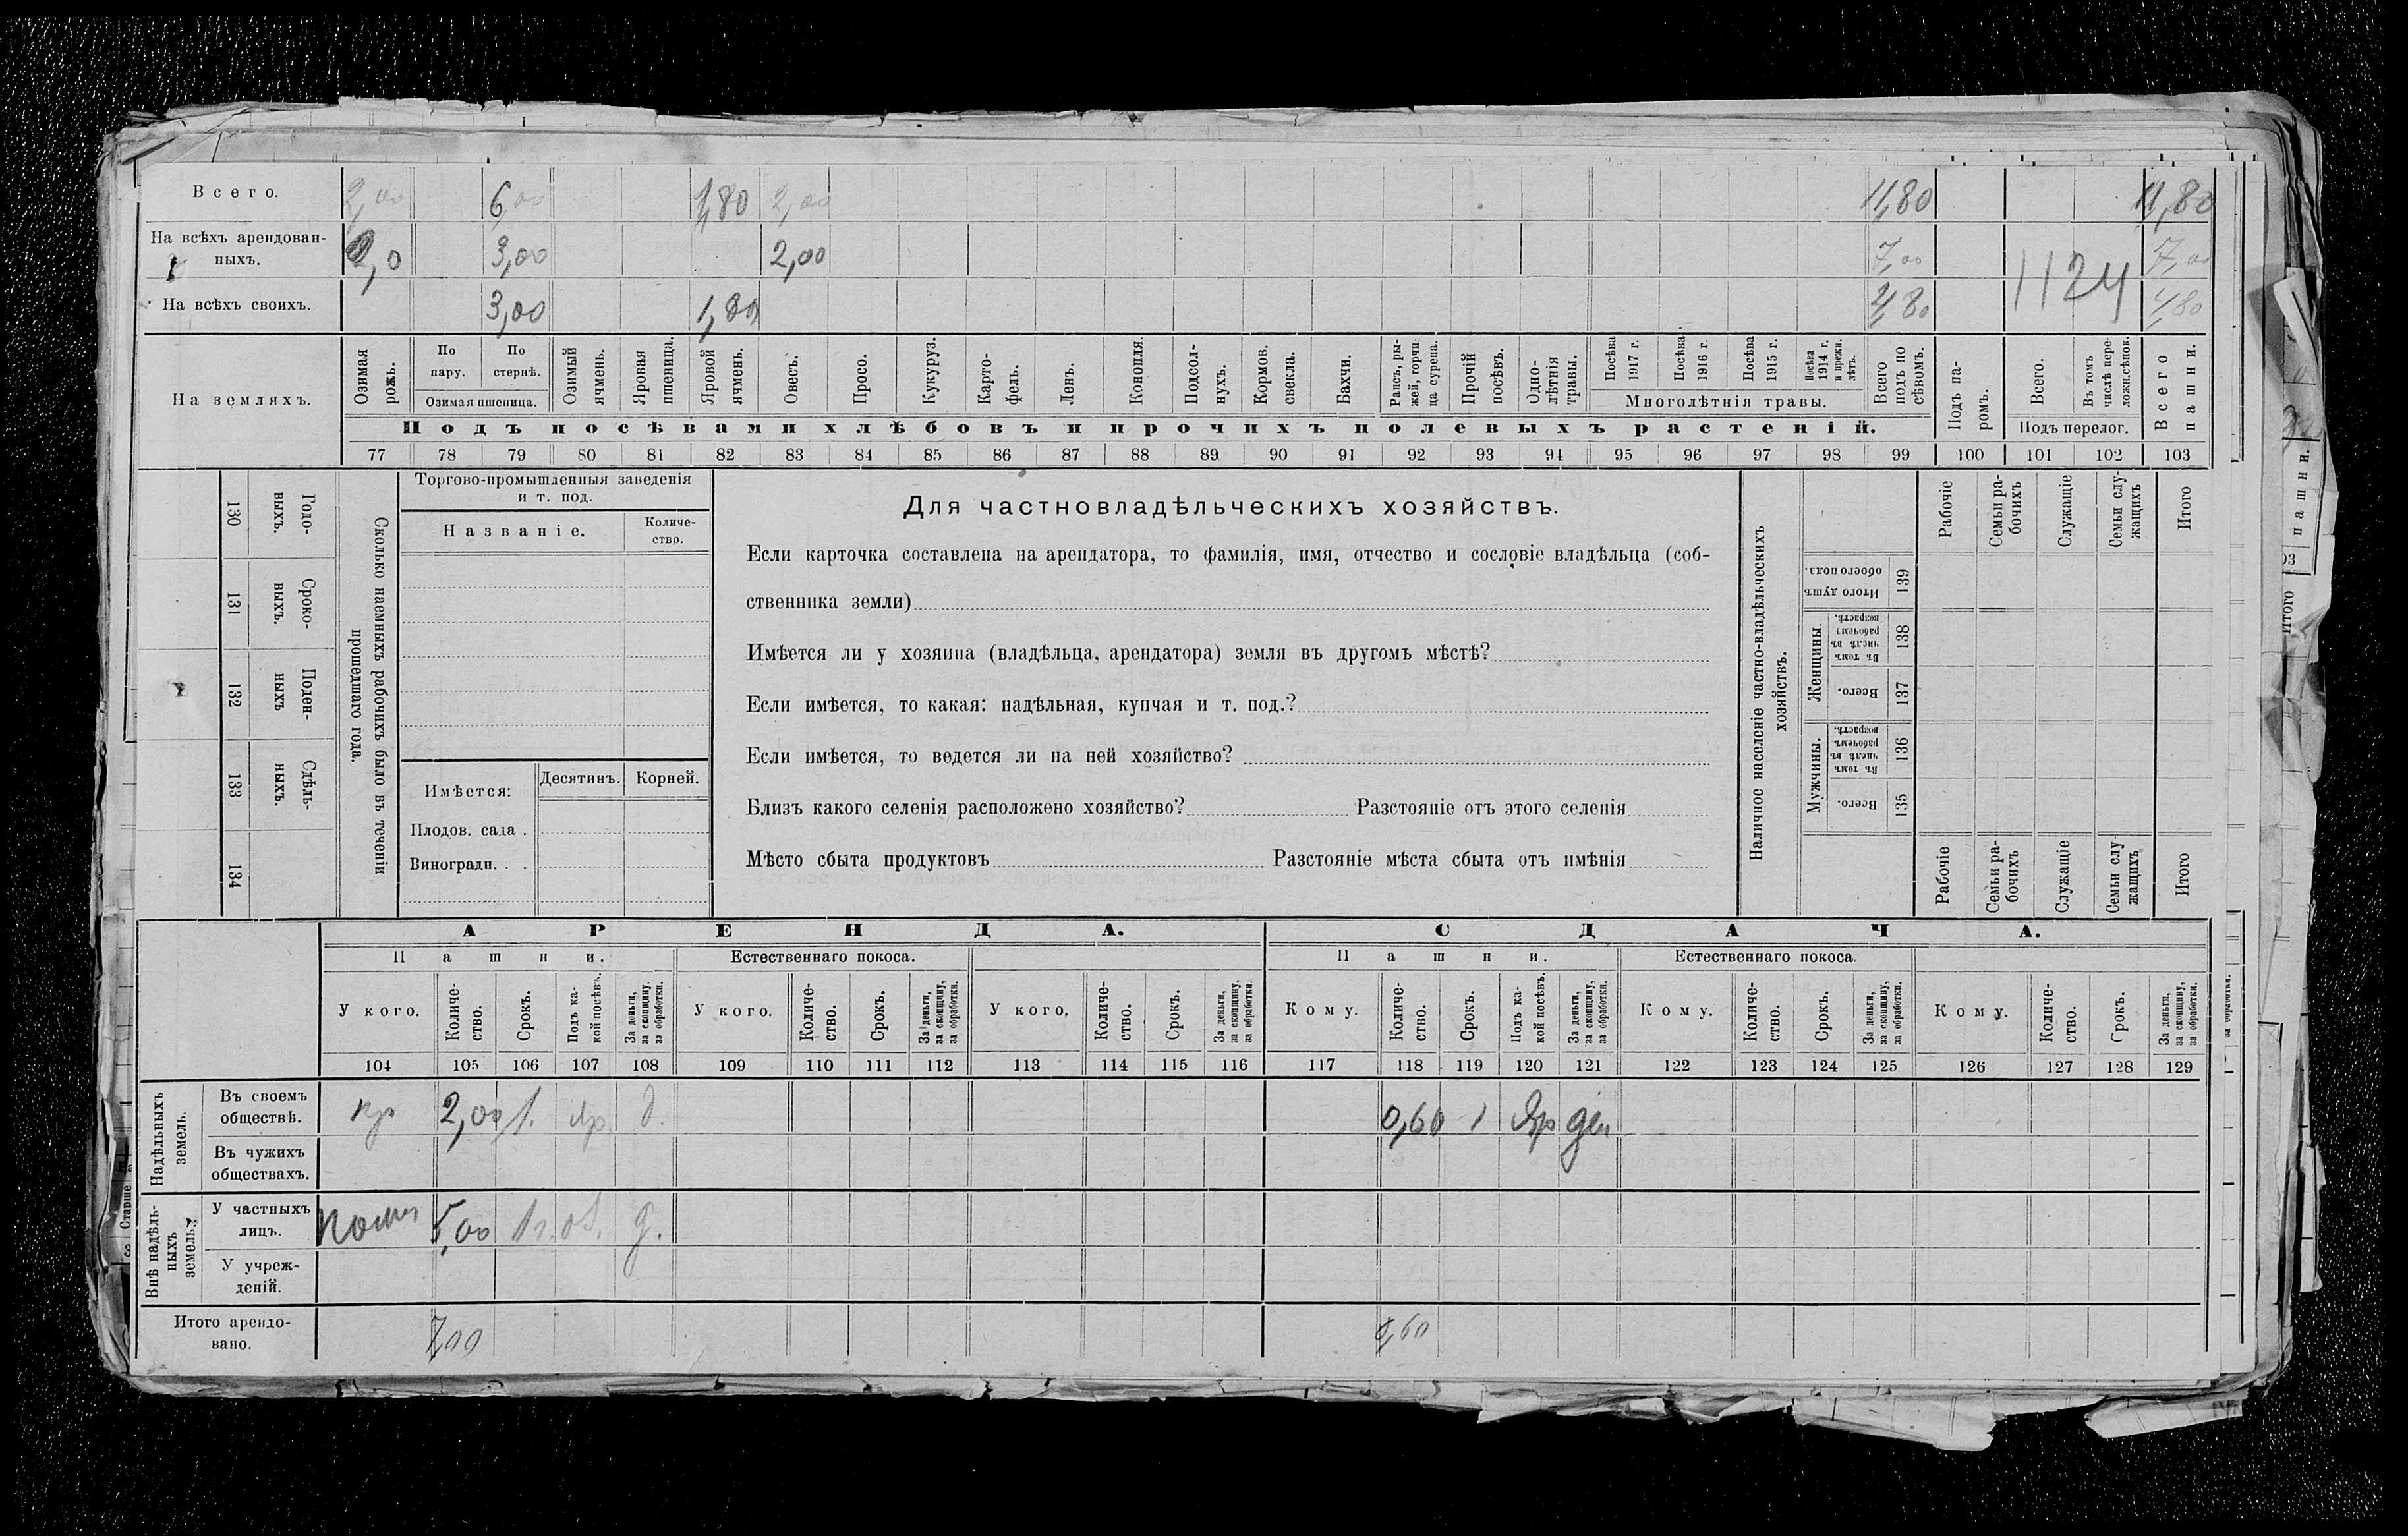 Всего. 2,00 6,00 1,80 2,00 11,80 11,80
На всѣхъ арендован-
ныхъ. 2,0 3,00 2,00 7,00 7,00
1124
На всѣхъ своихъ. 3,00 1,80 4,80 4,80
На земляхъ.
Озимая рожь.
По пару.
По стернѣ.
Озимая пшеница.
Озимый ячмень.
Яровая пшеница.
Яровой ячмень.
Овесъ.
Просо.
Кукуруз.
Карто-
фель.
Ленъ.
Конопля.
Подсол-
нухъ.
Кормов. свекла.
Бахчи.
Рапсъ, ры-
жей, горчи-
ца сурепа.
Прочій посѣвъ.
Одно-
лѣтнія травы.
Посѣва 1917 г.
Посѣва 1916 г.
Посѣва 1915 г.
Посѣва 1914 г. и прежн. лѣтъ.
Многолѣтнія травы.
Всего подъ по
сѣвомъ.
Подъ па-
ромъ.
Всего.
Въ томъ числѣ пере-
ложн. сѣнок.
Подъ перелог.
Всего пашни.
Подъ посѣвами хлѣбовъ и прочихъ полевыхъ растеній.
77 78 79 80 81 82 83 84 85 86 87 88 89 90 91 92 93 94 95 96 97 98 99 100 101 102 103
130 Годо-
выхъ.
131 Сроко-
ныхъ.
132 Поден-
ныхъ
133 Сдѣль-
ныхъ.
134
Сколько наемныхъ рабочихъ было въ теченіи
прошедшаго года.
Торгово-промышленныя заведенія
и т. под.
Названіе.
Количе-
ство.
Имѣется: Десятинъ. Корней.
Плодов. сада .
Виноградн. . .
Для частновладѣльческихъ хозяйствъ.
Если карточка составлена на арендатора, то фамилія, имя, отчество и сословіе владѣльца (соб-
ственника земли)
Имѣется ли у хозяина (владѣльца, арендатора) земля въ другомъ мѣстѣ?
Если имѣется, то какая: надѣльная, купчая и т. под.?
Если имѣется, то ведется ли на ней хозяйство?
Близъ какого селенія расположено хозяйство? Разстояніе отъ этого селенія
Мѣсто сбыта продуктовъ Разстояніе мѣста сбыта отъ имѣнія
Наличное населеніе частно-владѣльческихъ
хозяйствъ.
Рабочіе
Семьи ра-
бочихъ
Служащіе
Семьи слу-
жащихъ
Итого
Итого душъ обоего пола. 139
Женщины.
Въ томъ числѣ въ рабочемъ возрастѣ. 138
Всего. 137
Мужчины.
Въ томъ числѣ въ рабочемъ возрастѣ. 136
Всего. 135
Рабочіе
Семьи ра-
бочихъ
Служащіе
Семьи слу-
жащихъ
Итого
АРЕНДА. СДАЧА.
Пашни. Естественнаго покоса. Пашни. Естественнаго покоса.
У кого. Количе-
ство. Срокъ. Подъ ка-
кой посѣвъ. За деньги, за скопщину, за обработки.
У кого. Количе-
ство. Срокъ. За деньги, за скопщину, за обработки.
У кого. Количе-
ство. Срокъ. За деньги, за скопщину, за обработки.
Кому. Количе-
ство. Срокъ. Подъ ка-
кой посѣвъ. За деньги, за скопщину, за обработки.
Кому. Количе-
ство. Срокъ. За деньги, за скопщину, за обработки.
Кому. Количе-
ство. Срокъ. За деньги, за скопщину, за обработки.
104 105 106 107 108 109 110 111 112 113 114 115 116 117 118 119 120 121 122 123 124 125 126 127 128 129
Надѣльныхъ
земель.
Въ своемъ
обществѣ. кр 2,00 1. яр. д. 0,60 1 Яр ден
Въ чужихъ
обществахъ.
Внѣ надѣль-
ныхъ
земель.
У частныхъ
лицъ. 5,00 1 г. оз. д.
У учреж-
деній.
Итого арендо-
вано. 7,00 0,60
пашни.
03
Итого
Старше